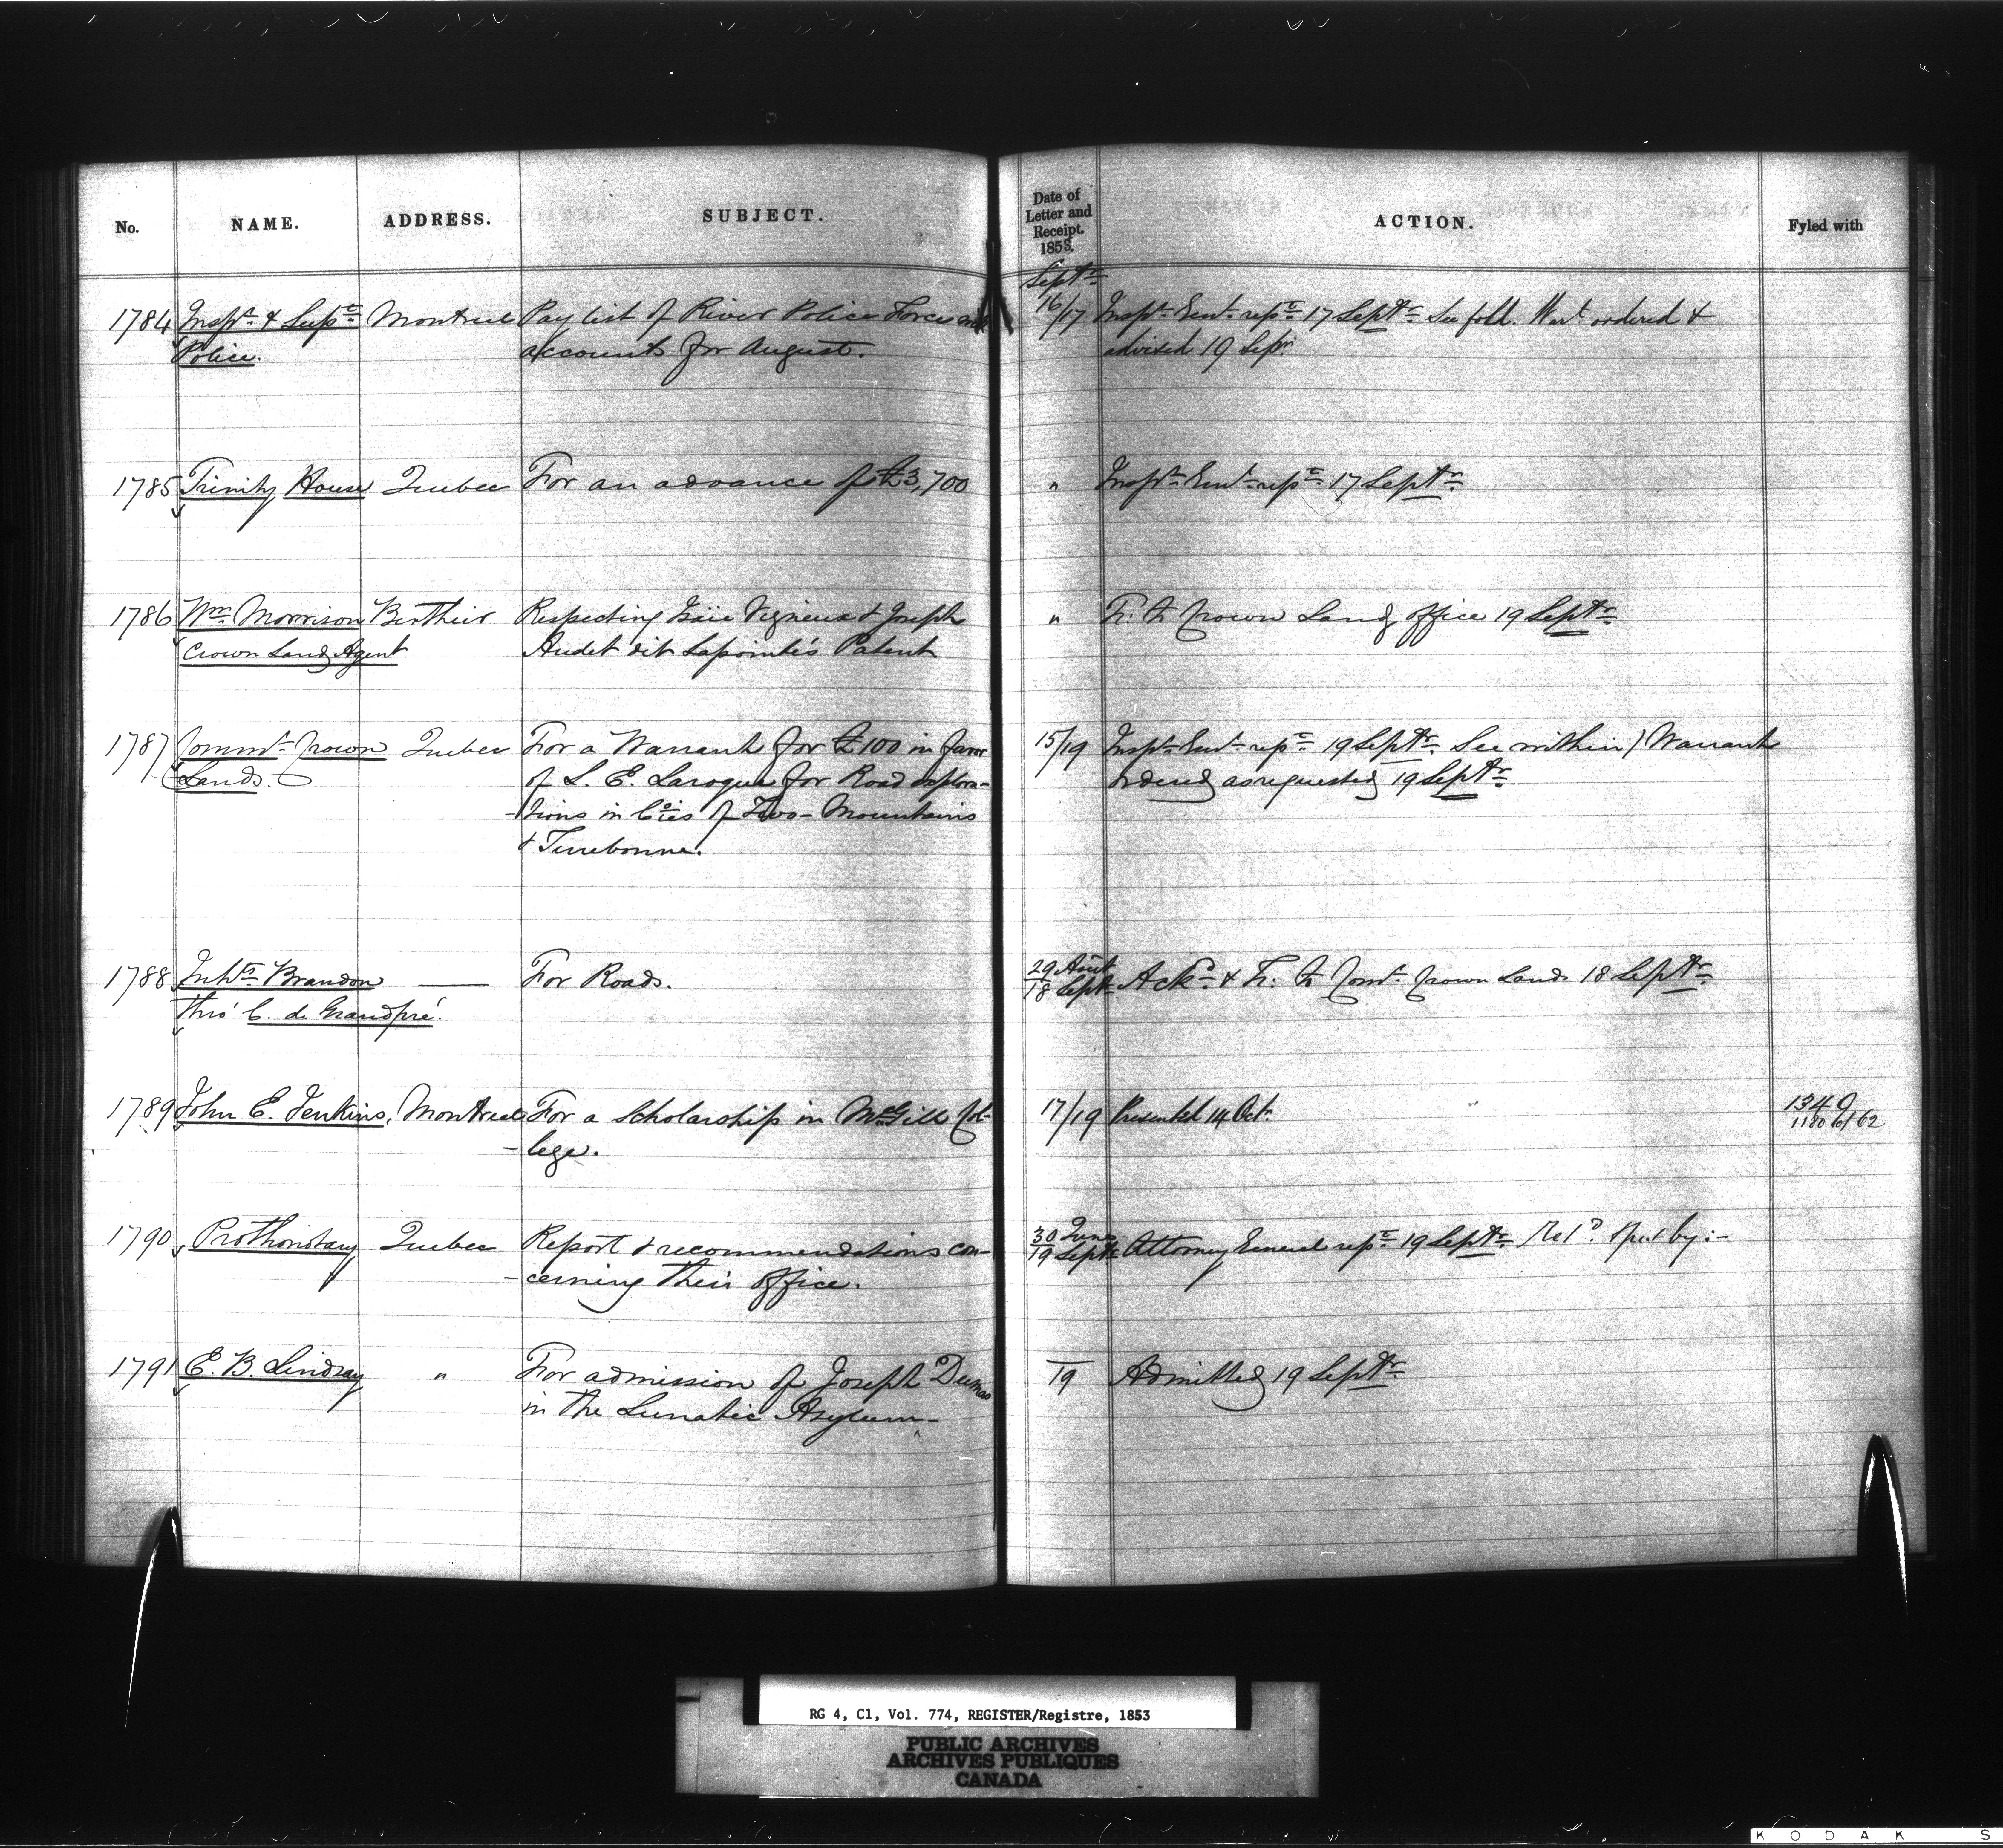 No. NAME. ADDRESS. SUBJECT. Date of Letter and Receipt. 1853. ACTION. Fyled with
Septr
1784 Inspr & Supt Montreal Pay list of River Police Force and 16/17 Inspr Genl rept 17 Septr See fold. Wart ordered &
Police. accounts for August. advised 19 Sepr
1785 Trinity House Quebec For an advance of £3,700 " Inspr Genl rept 17 Septr
1786 Wm Morrison Berthier Respecting Vigneux & Joseph " Tr. to Crown Land office 19 Septr
Crown Land Agent Audet dit Lapointe's Patent
1787 Commr Crown Quebec For a Warrant for £100 in favor 15/19 Inspr Genl rept 19 Septr See within / Warrant
Lands. of L. E. Laroque for Road explora- ordered as requested 19 Septr
-tions in Coies of Two-Mountains
& Terrebonne.
1788 Inhts Brandon — For Roads. 29 Aout Ackd & Tr. to Comr Crown Lands 18 Septr
thro' C. de Grandpré. 18 Septr
1789 John E. Jenkins, Montreal For a Scholarship in McGill Col- 17/19 Presented 14 Octr 1340
-lege. 1180 of 62
1790 Prothonotary Quebec Report & recommendations con- 30 June Attorney General rept 19 Septr Retd & put by :-
-cerning their office. 19 Septr
1791 E. B. Lindsay " For admission of Joseph Dumas 19 Admitted 19 Septr
in the Lunatic Asylum-
RG 4, C1, Vol. 774, REGISTER/Registre, 1853
PUBLIC ARCHIVES
ARCHIVES PUBLIQUES
CANADA
KODAK S